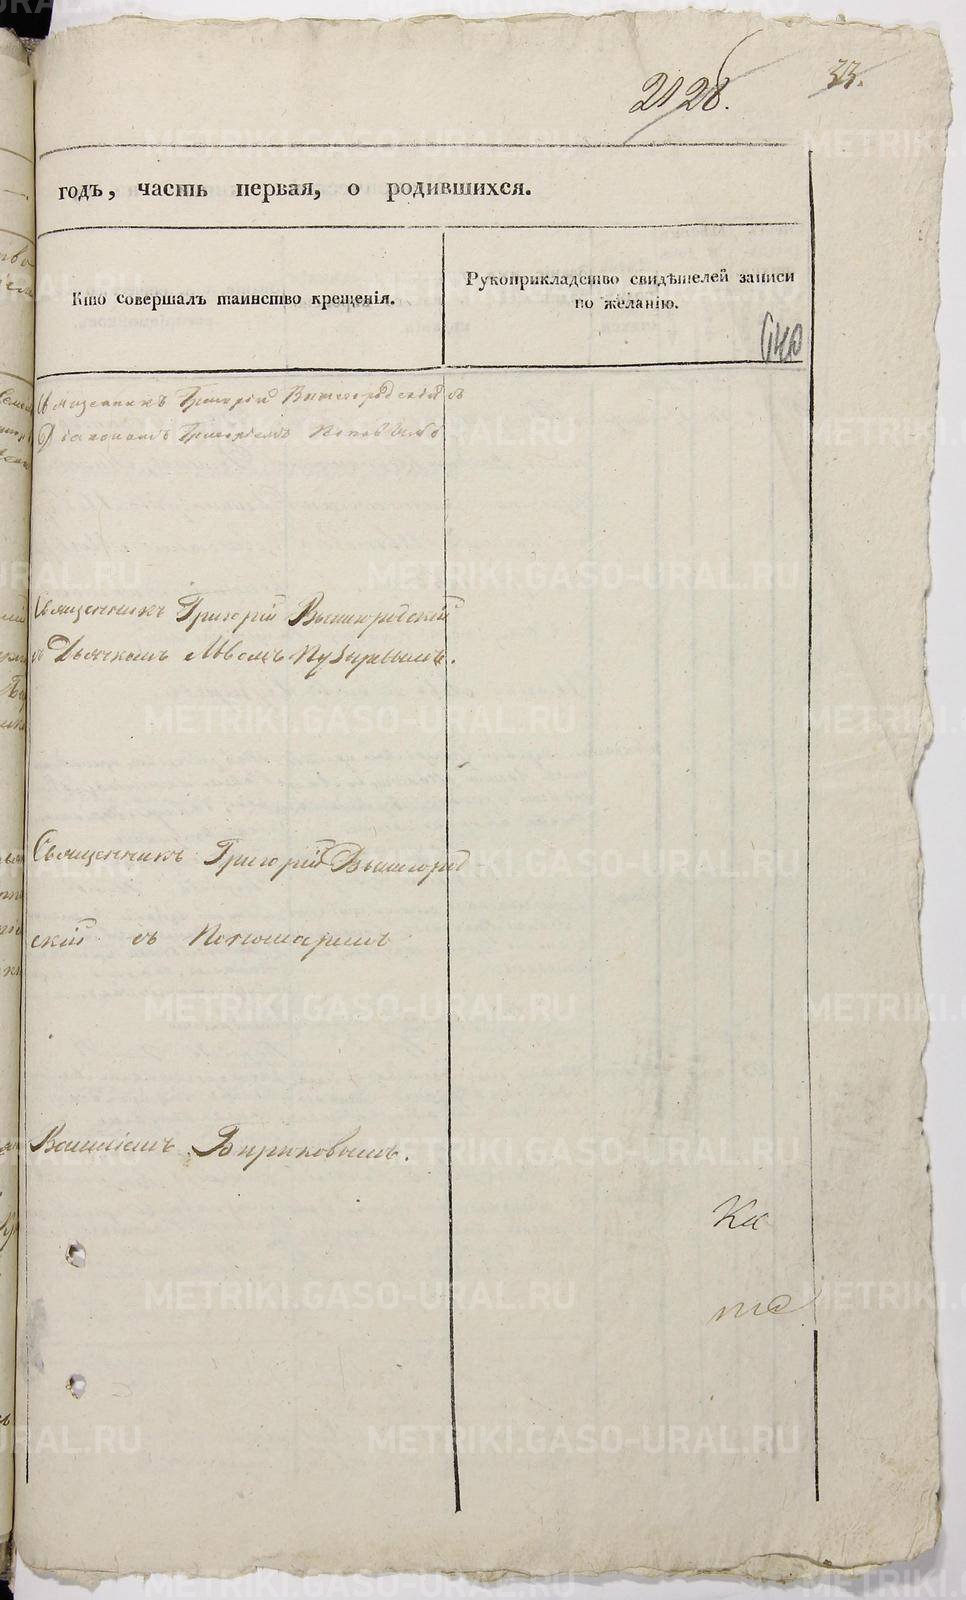 2128.
33.
годъ, часть первая, о родившихся.
Кто совершалъ таинство крещенія.
Рукоприкладство свидѣтелей записи
по желанію.
Священникъ Григорій Вышегородскій съ
Григоріемъ Поповымъ
Священникъ Григорій Вышгородскій
съ Дьячкомъ Львомъ Пузыревымъ.
Священникъ Григорій Вышгород
скій съ Пономаремъ
Василіемъ Бирюковымъ.
METRIKI.GASO-URAL.RU